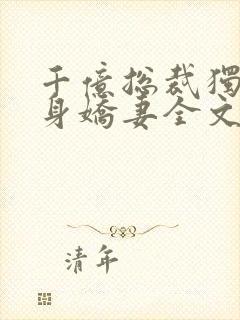 千億總裁獨
身嬌妻全文
清年